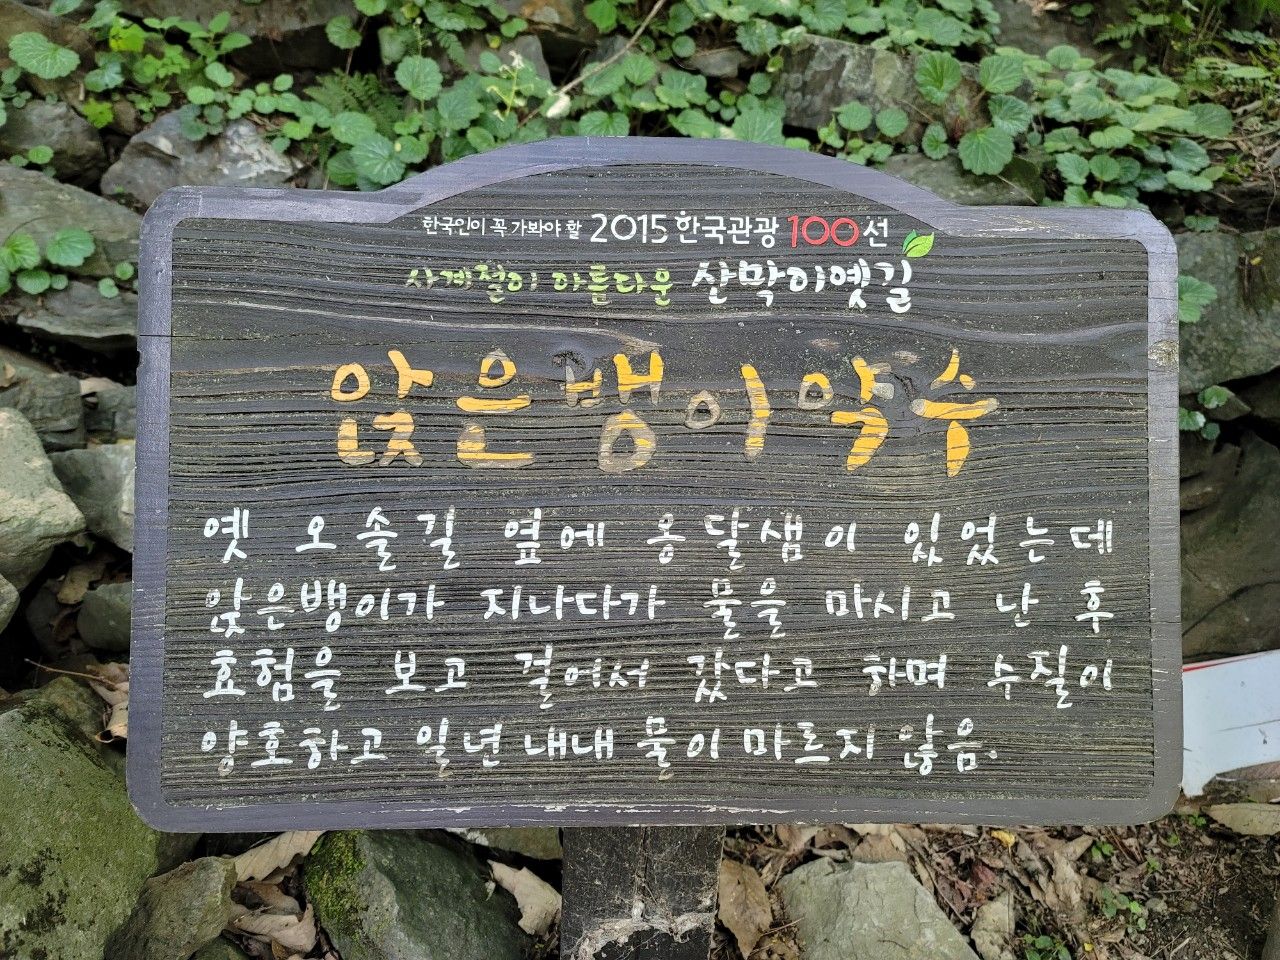 한국인이 꼭 가봐야 할 2015 한국관광 100선
사계절이 아름다운 산막이옛길
앉은뱅이약수
옛 오솔길 옆에 옹달샘이 있었는데
앉은뱅이가 지나다가 물을 마시고 난 후
효험을 보고 걸어서 갔다고 하며 수질이
양호하고 일년 내내 물이 마르지 않음.